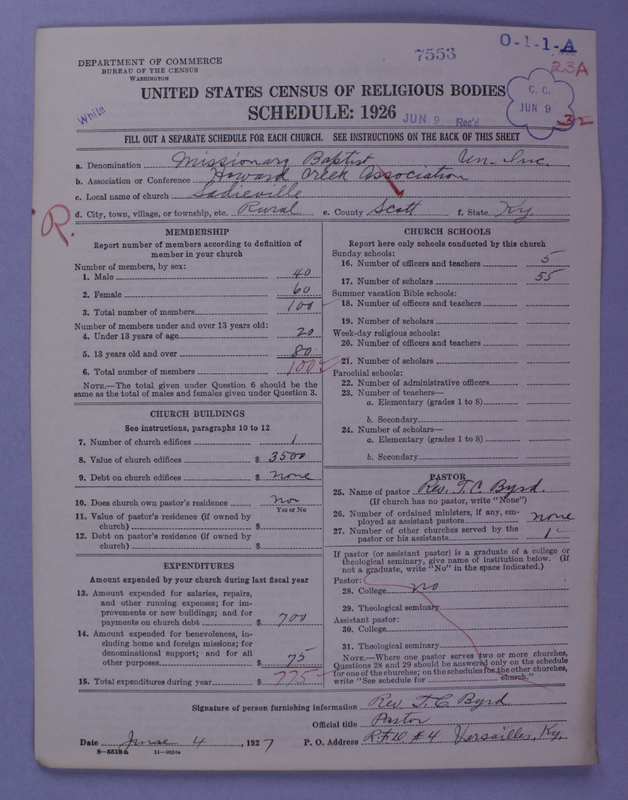 7553
O-1-1-A
23A
DEPARTMENT OF COMMERCE
BUREAU OF THE CENSUS
WASHINGTON
UNITED STATES CENSUS OF RELIGIOUS BODIES
SCHEDULE: 1926
C. C.
JUN 9
32
White
JUN 9 Rec'd
FILL OUT A SEPARATE SCHEDULE FOR EACH CHURCH. SEE INSTRUCTIONS ON THE BACK OF THIS SHEET
a. Denomination Missionary Baptist Un. Inc.
b. Association or Conference Howard Creek Association
c. Local name of church Sadieville
d. City, town, village, or township, etc. Rural e. County Scott f. State Ky.
R.
MEMBERSHIP
Report number of members according to definition of
member in your church
Number of members, by sex:
1. Male 40
2. Female 60
3. Total number of members 100
Number of members under and over 13 years old:
4. Under 13 years of age 20
5. 13 years old and over 80
6. Total number of members 100
NOTE.—The total given under Question 6 should be the
same as the total of males and females given under Question 3.
CHURCH BUILDINGS
See instructions, paragraphs 10 to 12
7. Number of church edifices 1
8. Value of church edifices $ 3500
9. Debt on church edifices $ none
10. Does church own pastor's residence no
Yes or No
11. Value of pastor's residence (if owned by
church) $
12. Debt on pastor's residence (if owned by
church) $
EXPENDITURES
Amount expended by your church during last fiscal year
13. Amount expended for salaries, repairs,
and other running expenses; for im-
provements or new buildings; and for
payments on church debt $ 700
14. Amount expended for benevolences, in-
cluding home and foreign missions; for
denominational support; and for all
other purposes $ 75
15. Total expenditures during year $ 775
CHURCH SCHOOLS
Report here only schools conducted by this church
Sunday schools:
16. Number of officers and teachers 5
17. Number of scholars 55
Summer vacation Bible schools:
18. Number of officers and teachers
19. Number of scholars
Week-day religious schools:
20. Number of officers and teachers
21. Number of scholars
Parochial schools:
22. Number of administrative officers
23. Number of teachers—
a. Elementary (grades 1 to 8)
b. Secondary
24. Number of scholars—
a. Elementary (grades 1 to 8)
b. Secondary
PASTOR
25. Name of pastor Rev. T. C. Byrd.
(If church has no pastor, write "None")
26. Number of ordained ministers, if any, em-
ployed as assistant pastors none
27. Number of other churches served by the
pastor or his assistants 1
If pastor (or assistant pastor) is a graduate of a college or
theological seminary, give name of institution below. (If
not a graduate, write "No" in the space indicated.)
Pastor:
28. College no
29. Theological seminary
Assistant pastor:
30. College
31. Theological seminary
NOTE.—Where one pastor serves two or more churches,
Questions 28 and 29 should be answered only on the schedule
for one of the churches; on the schedules for the other churches,
write "See schedule for church."
Signature of person furnishing information Rev. T. C. Byrd
Official title Pastor
Date June 4, 1927 P. O. Address R.F.D. #4 Versailles, Ky.
8-5518a 11-9534a